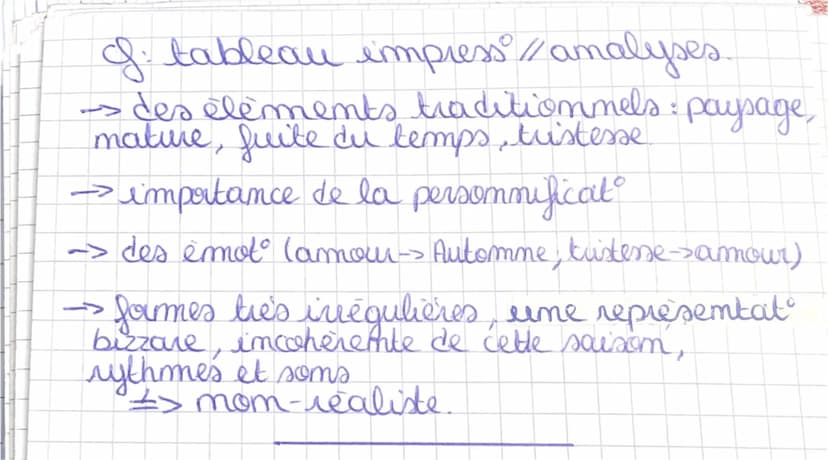 cf. tableau impress° // analyses.
-> des éléments traditionnels : paysage,
nature, fuite du temps, tristesse
-> importance de la personnificat°
-> des émot° (amour -> Automne ; tristesse -> amour)
-> formes très irrégulières, une représentat°
bizzare, incohérente de cette saison,
rythmes et sons
≠> non-réaliste.